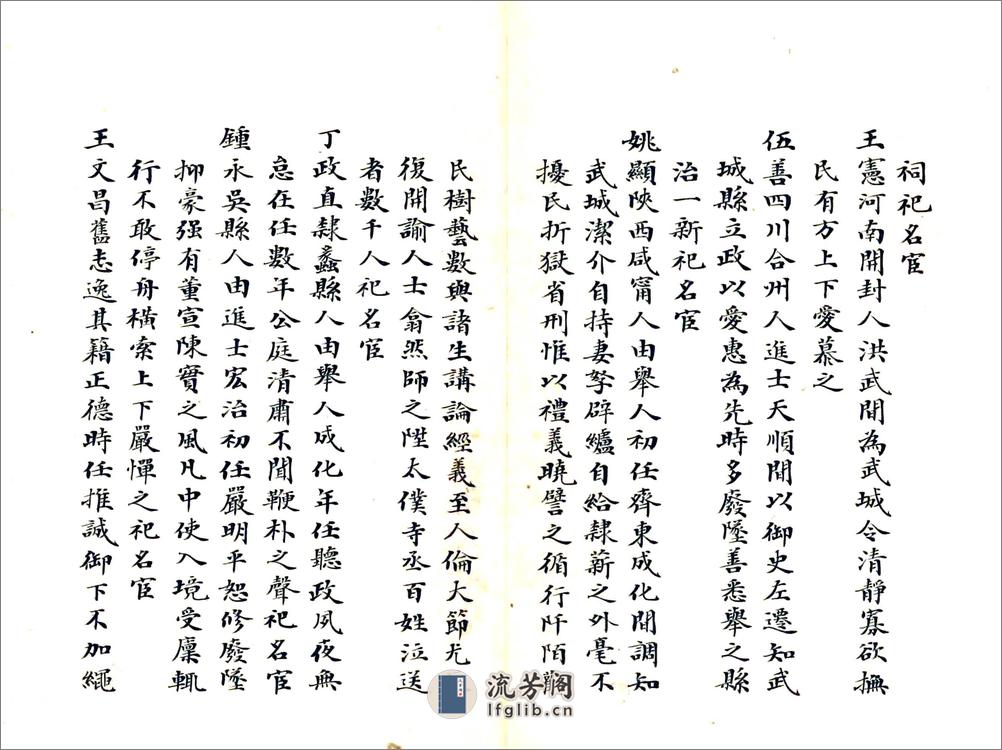 祠祀名宦
王憲河南開封人洪武間為武城令清靜寡欲撫
民有方上下愛慕之
伍善四川合州人進士天順間以御史左遷知武
城縣立政以愛惠為先時多廢墜善悉舉之縣
治一新祀名宦
姚顯陝西咸甯人由舉人初任齊東成化間調知
武城潔介自持妻孥辟纑自給隸薪之外毫不
擾民折獄省刑惟以禮義曉譬之循行阡陌
民樹藝數與諸生講論經義至人倫大節尤
復開諭人士翕然師之陞太僕寺丞百姓泣送
者數千人祀名宦
丁政直隸蠡縣人由舉人成化年任聽政夙夜無
怠在任數年公庭清肅不聞鞭朴之聲祀名宦
鍾永吳縣人由進士宏治初任嚴明平恕修廢墜
抑豪强有董宣陳實之風凡中使入境受廩輒
行不敢停舟橫索上下嚴憚之祀名宦
王文昌舊志逸其籍正德時任推誠御下不加繩
流芳閣
lfglib.cn